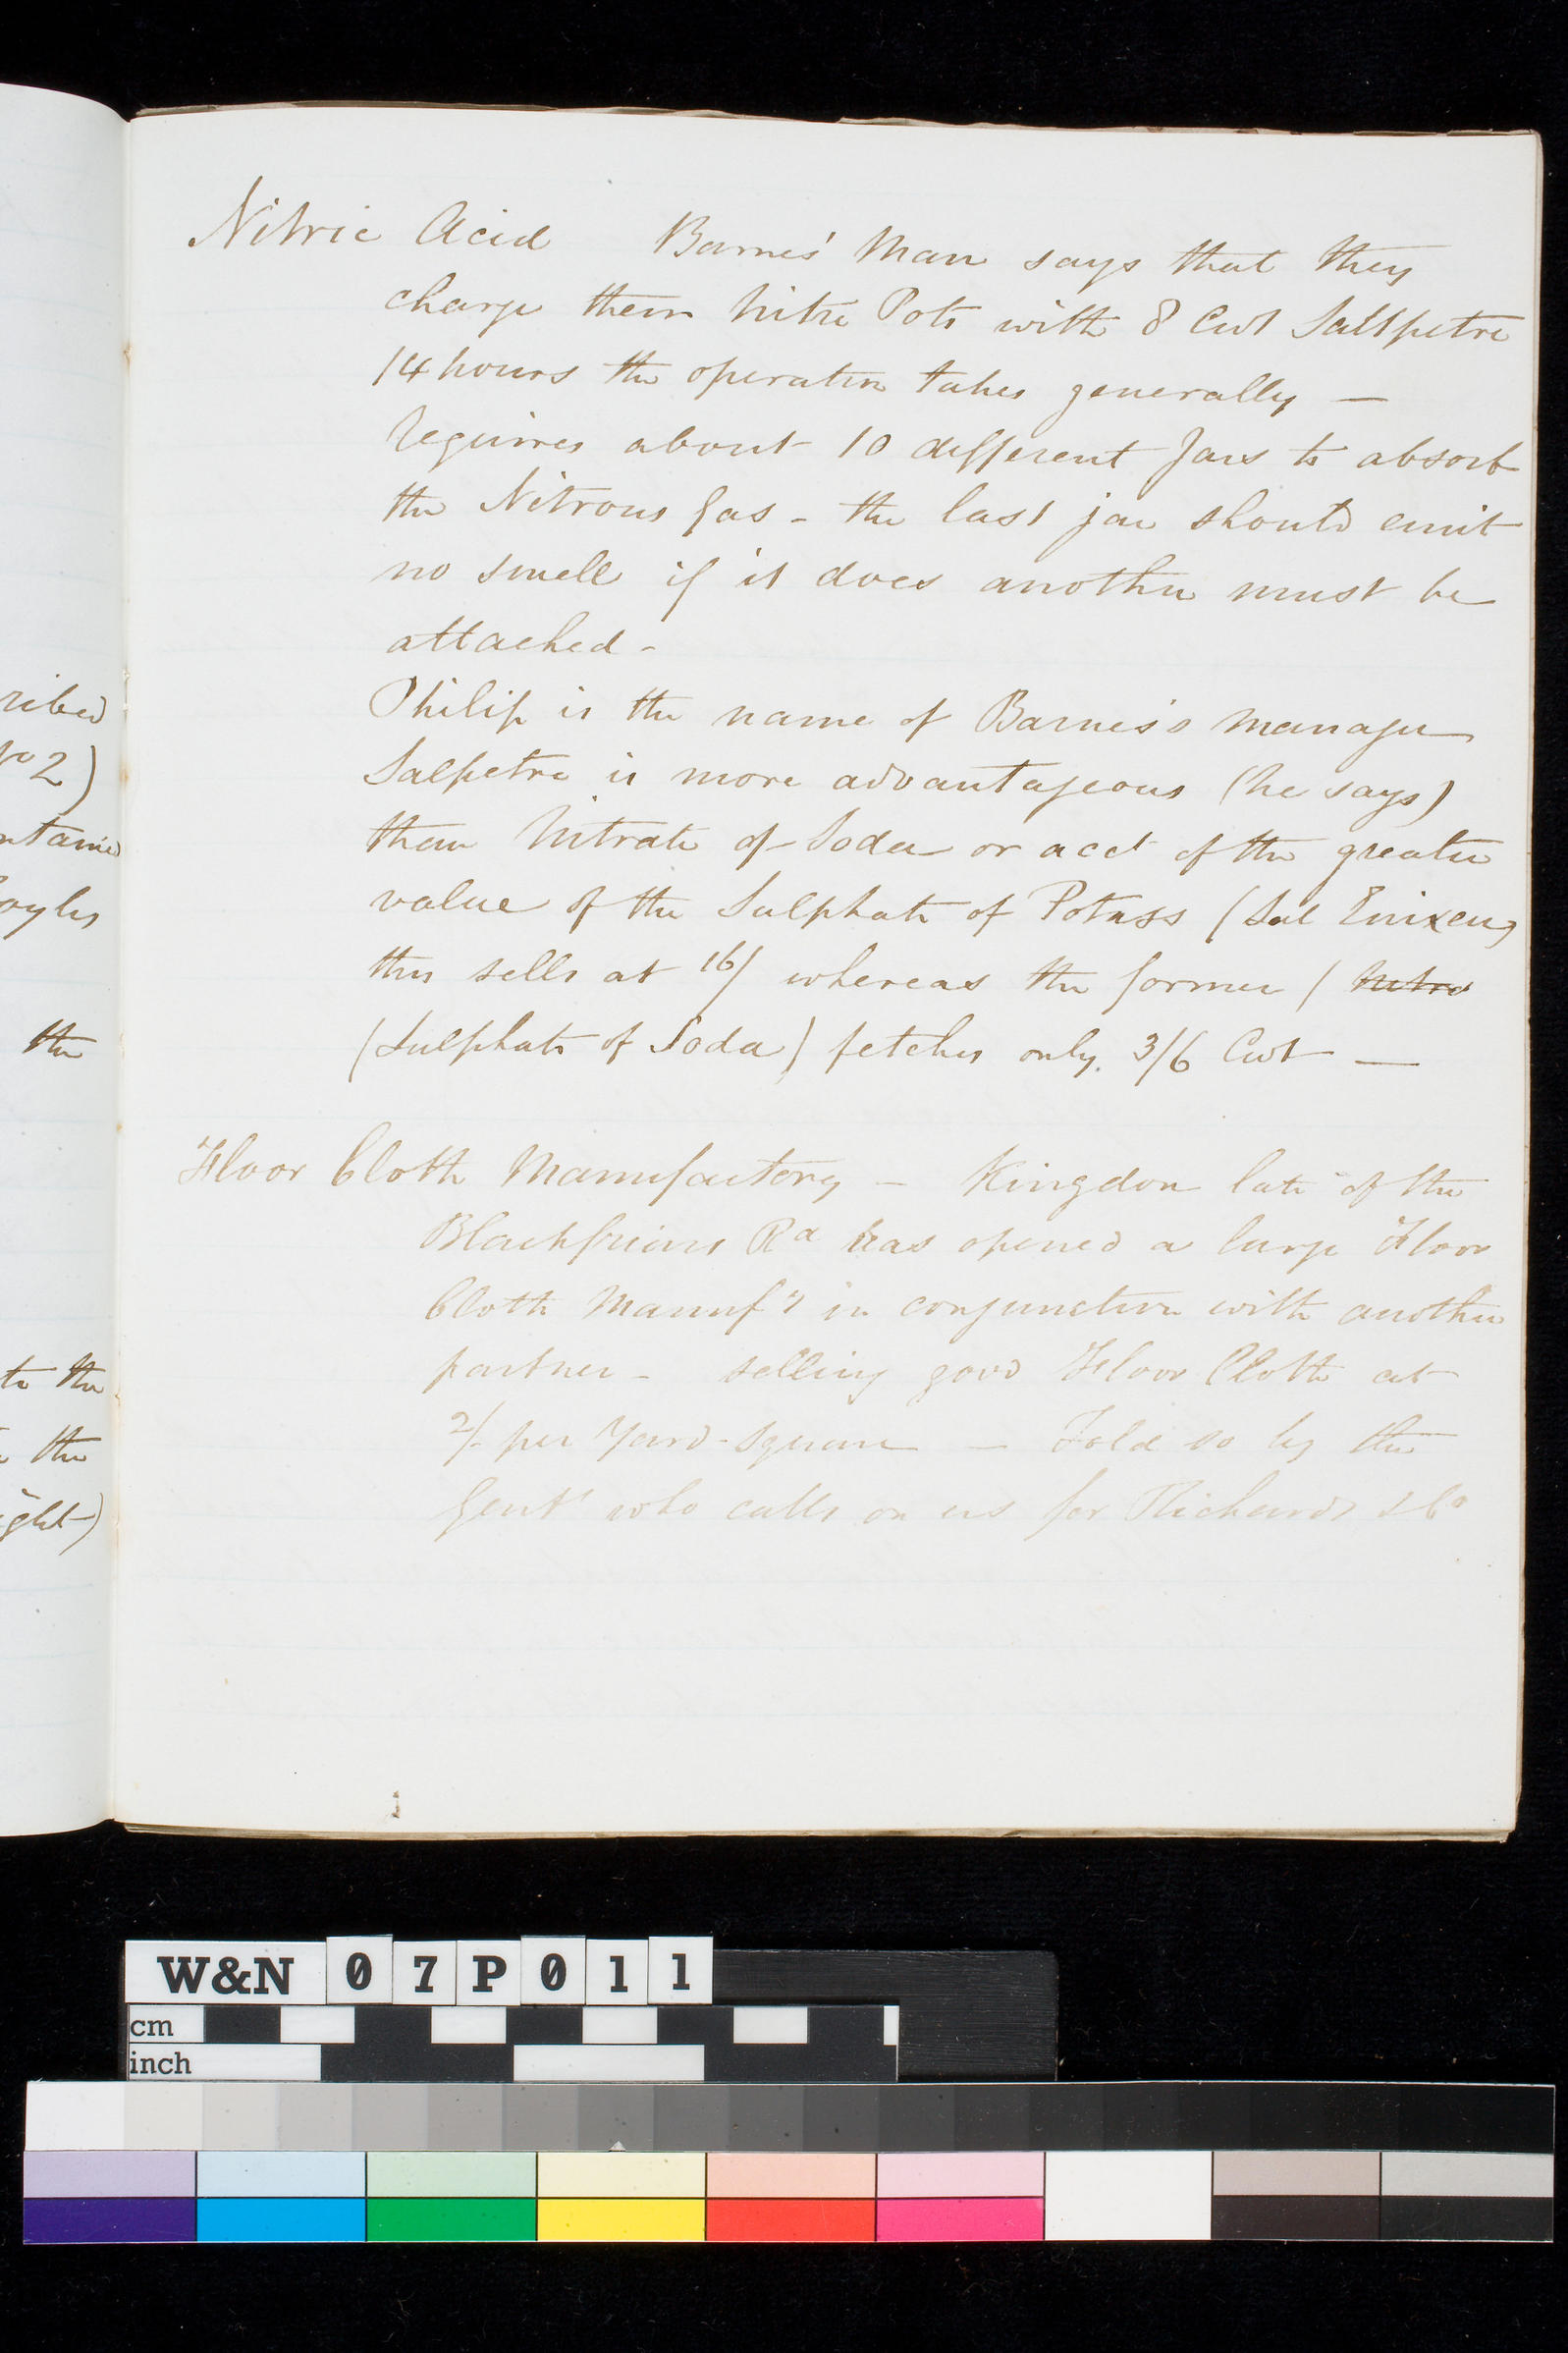 Nitric Acid Barnes' Man says that they
charge their Nitre Pots with 8 Cwt Saltpetre
14 hours the operation takes generally —
Requires about 10 different Jars to absorb
the Nitrous Gas - the last jar should emit
no smell if it does another must be
attached -
Philip is the name of Barnes's Manager
Salpetre is more advantageous (he says)
than Nitrate of Soda on acct of the greater
value of the Sulphate of Potass (Sal Enixen)
this sells at 16/ whereas the former / Nitra
(Sulphate of Soda) fetches only 3/6 Cwt —
Floor Cloth Manufactory - Kingdon late of the
Blackfriars Rd has opened a large Floor
Cloth Manufy in conjunction with another
partner - selling good Floor Cloth at
2/- per Yard-Square — Told so by the
Gent who calls on us for Richards & Co
ribed
No 2)
ntained
oyles
the
to the
the
ight)
W&N 07P011
cm
inch